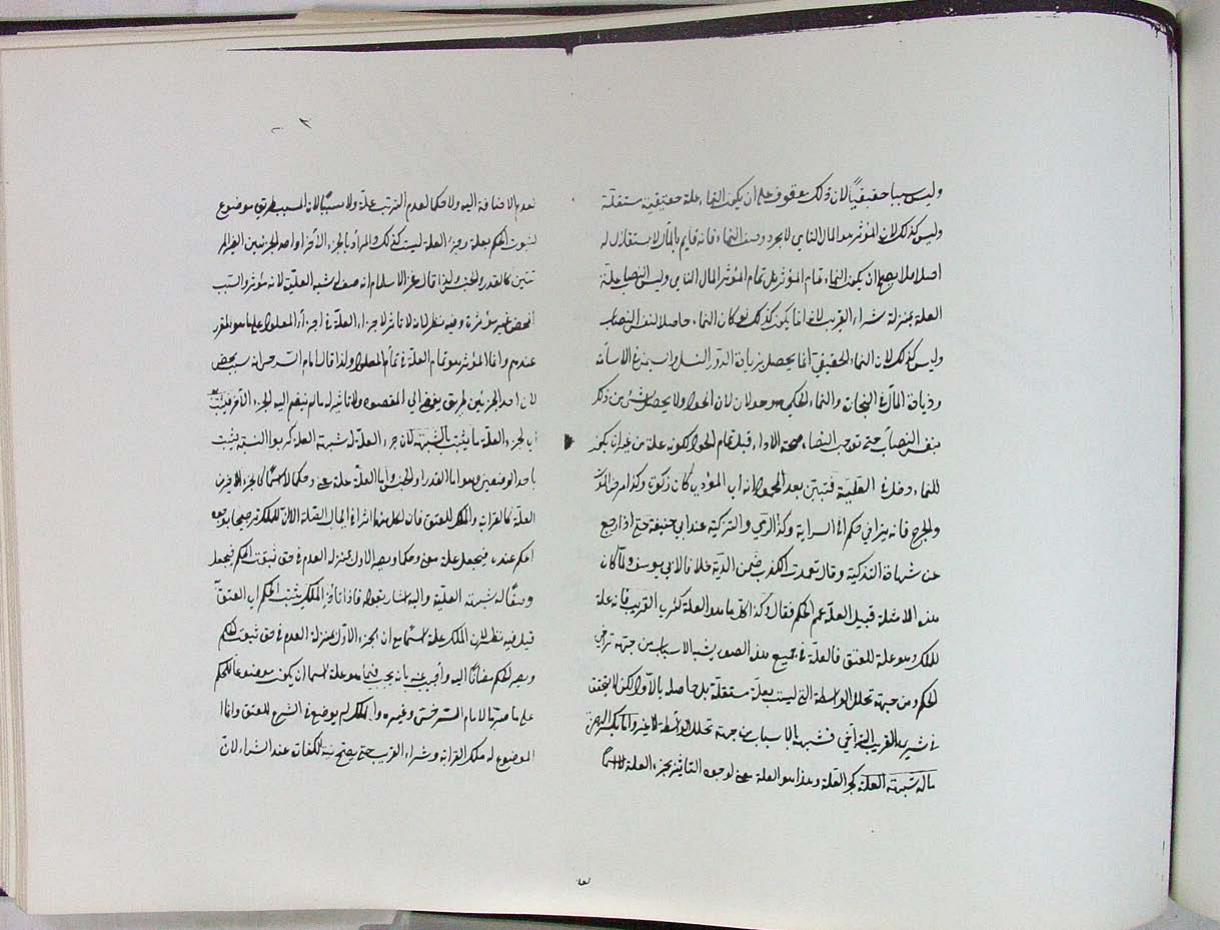 وليس سببا حقيقيا لان ذلك موقوف على ان يكون النماء علة حقيقية مستقلة
وليس كذلك لان المؤثر هو المال النامي لا مجرد وصف النماء فانه قايم بالمال لا استقلال له
اصلا فلا يصح ان يكون النماء تمام المؤثر بل تمام المؤثر المال النامي وليس النصاب علة
العلة بمنزلة شراء القريب لانه انما يكون كذلك لو كان النماء حاصلا لنفس النصاب
وليس كذلك لان النماء الحقيقي انما يحصل بزيادة الدر والنسل والسمن في الاسامة
وزيادة المال في التجارة والنماء الحكمي هو حولان الحول ولا يحصل شئ من ذلك
بنفس النصاب حتى توجب النصاب صحة الاداء قبل تمام الحول لكونه علة من غير ان يكون
للنماء دخل في العلية فتبين بعد الحول انه اي المؤدى كان زكوة وكذا مرض الموت
والجرح فانه يتراخي حكم الى السراية وكذا الرمي والتزكية عند ابي حنيفة حتى اذا رجع
عن شهادة التزكية وقال تعمدت الكذب ضمن الدية خلافا لابي يوسف ولما كان
هذه الامثلة قبيل العلة عمم الحكم فقال وكذا كل ما هو العلة كشراء القريب فانه علة
للملك وهو علة للعتق فالعلة في جميع هذه الصور يشبه الاسباب من جهة تراخي
الحكم ومن جهة تخلل الواسطة التي ليست بعلة مستقلة بل حاصلة بالاول لكن لا يتحقق
في شراء القريب التراخي فشبهه بالاسباب من جهة تخلل الواسطة لا غير واما
ما له شبهة العلة كجزء العلة وهذا هو العلة معنى لوجود التاثير بجزء العلة لا اسما
لعدم الاضافة اليه ولا حكما لعدم الترتب عليه ولا سببا لان السبب طريق موضوع
لثبوت الحكم بعلة وجزء العلة ليست كذلك والمراد بالجزء الأخر او احد الجزئين الغير المر
تبين كالقدر والجنس ولذا قال فخر الاسلام انه وصف له شبه العلية لانه مؤثر والسبب
المحض غير مؤثر وفيه نظر لان لا تاثير لاجزاء العلة في اجزاء المعلول على ما هو المقرر
عندهم وانما المؤثر هو تمام العلة في تمام المعلول ولذا قال امام السرخسي انه سبب محض
لان احد الجزئين طريق يفضي الى المقصود ولا تاثير له ما لم ينضم اليه الجزء الآخر فيثبت به
اي لجزء العلة ما يثبت بالشبهة لان جزء العلة له شبهة العلة كربوا النسيئة يثبت
باحد الوصفين وهو اما القدر او الجنس واما العلة علة معنى وحكما لا اسما كالجزء الاخير من
العلة كالقرابة والملك للعتق فان لكل منهما اثرا في ايجاب الصلة الا ان للملك ترجيحا لوجود
الحكم عنده فيجعل علة معنى وحكما ويصير الاول بمنزلة العدم في حق ثبوت الحكم فيجعل
وصفا له شبهة العلية واليه اشار بقوله فاذا تأخر الملك يثبت الحكم اي العتق به
قيل فيه نظر لان الملك علة اسما مع ان الجزء الاول بمنزلة العدم في حق ثبوت الحكم
ويصير الحكم مضافا اليه واجيب عنه بانه يجب فيما هو علة اسما ان يكون موضوعا للحكم
على ما صرح به الامام السرخسي وغيره والملك لم يوضع في الشرع للعتق وانما
الموضوع له ملك القرابة وشراء القريب حتى يصح نية الكفارة عند الشراء لان